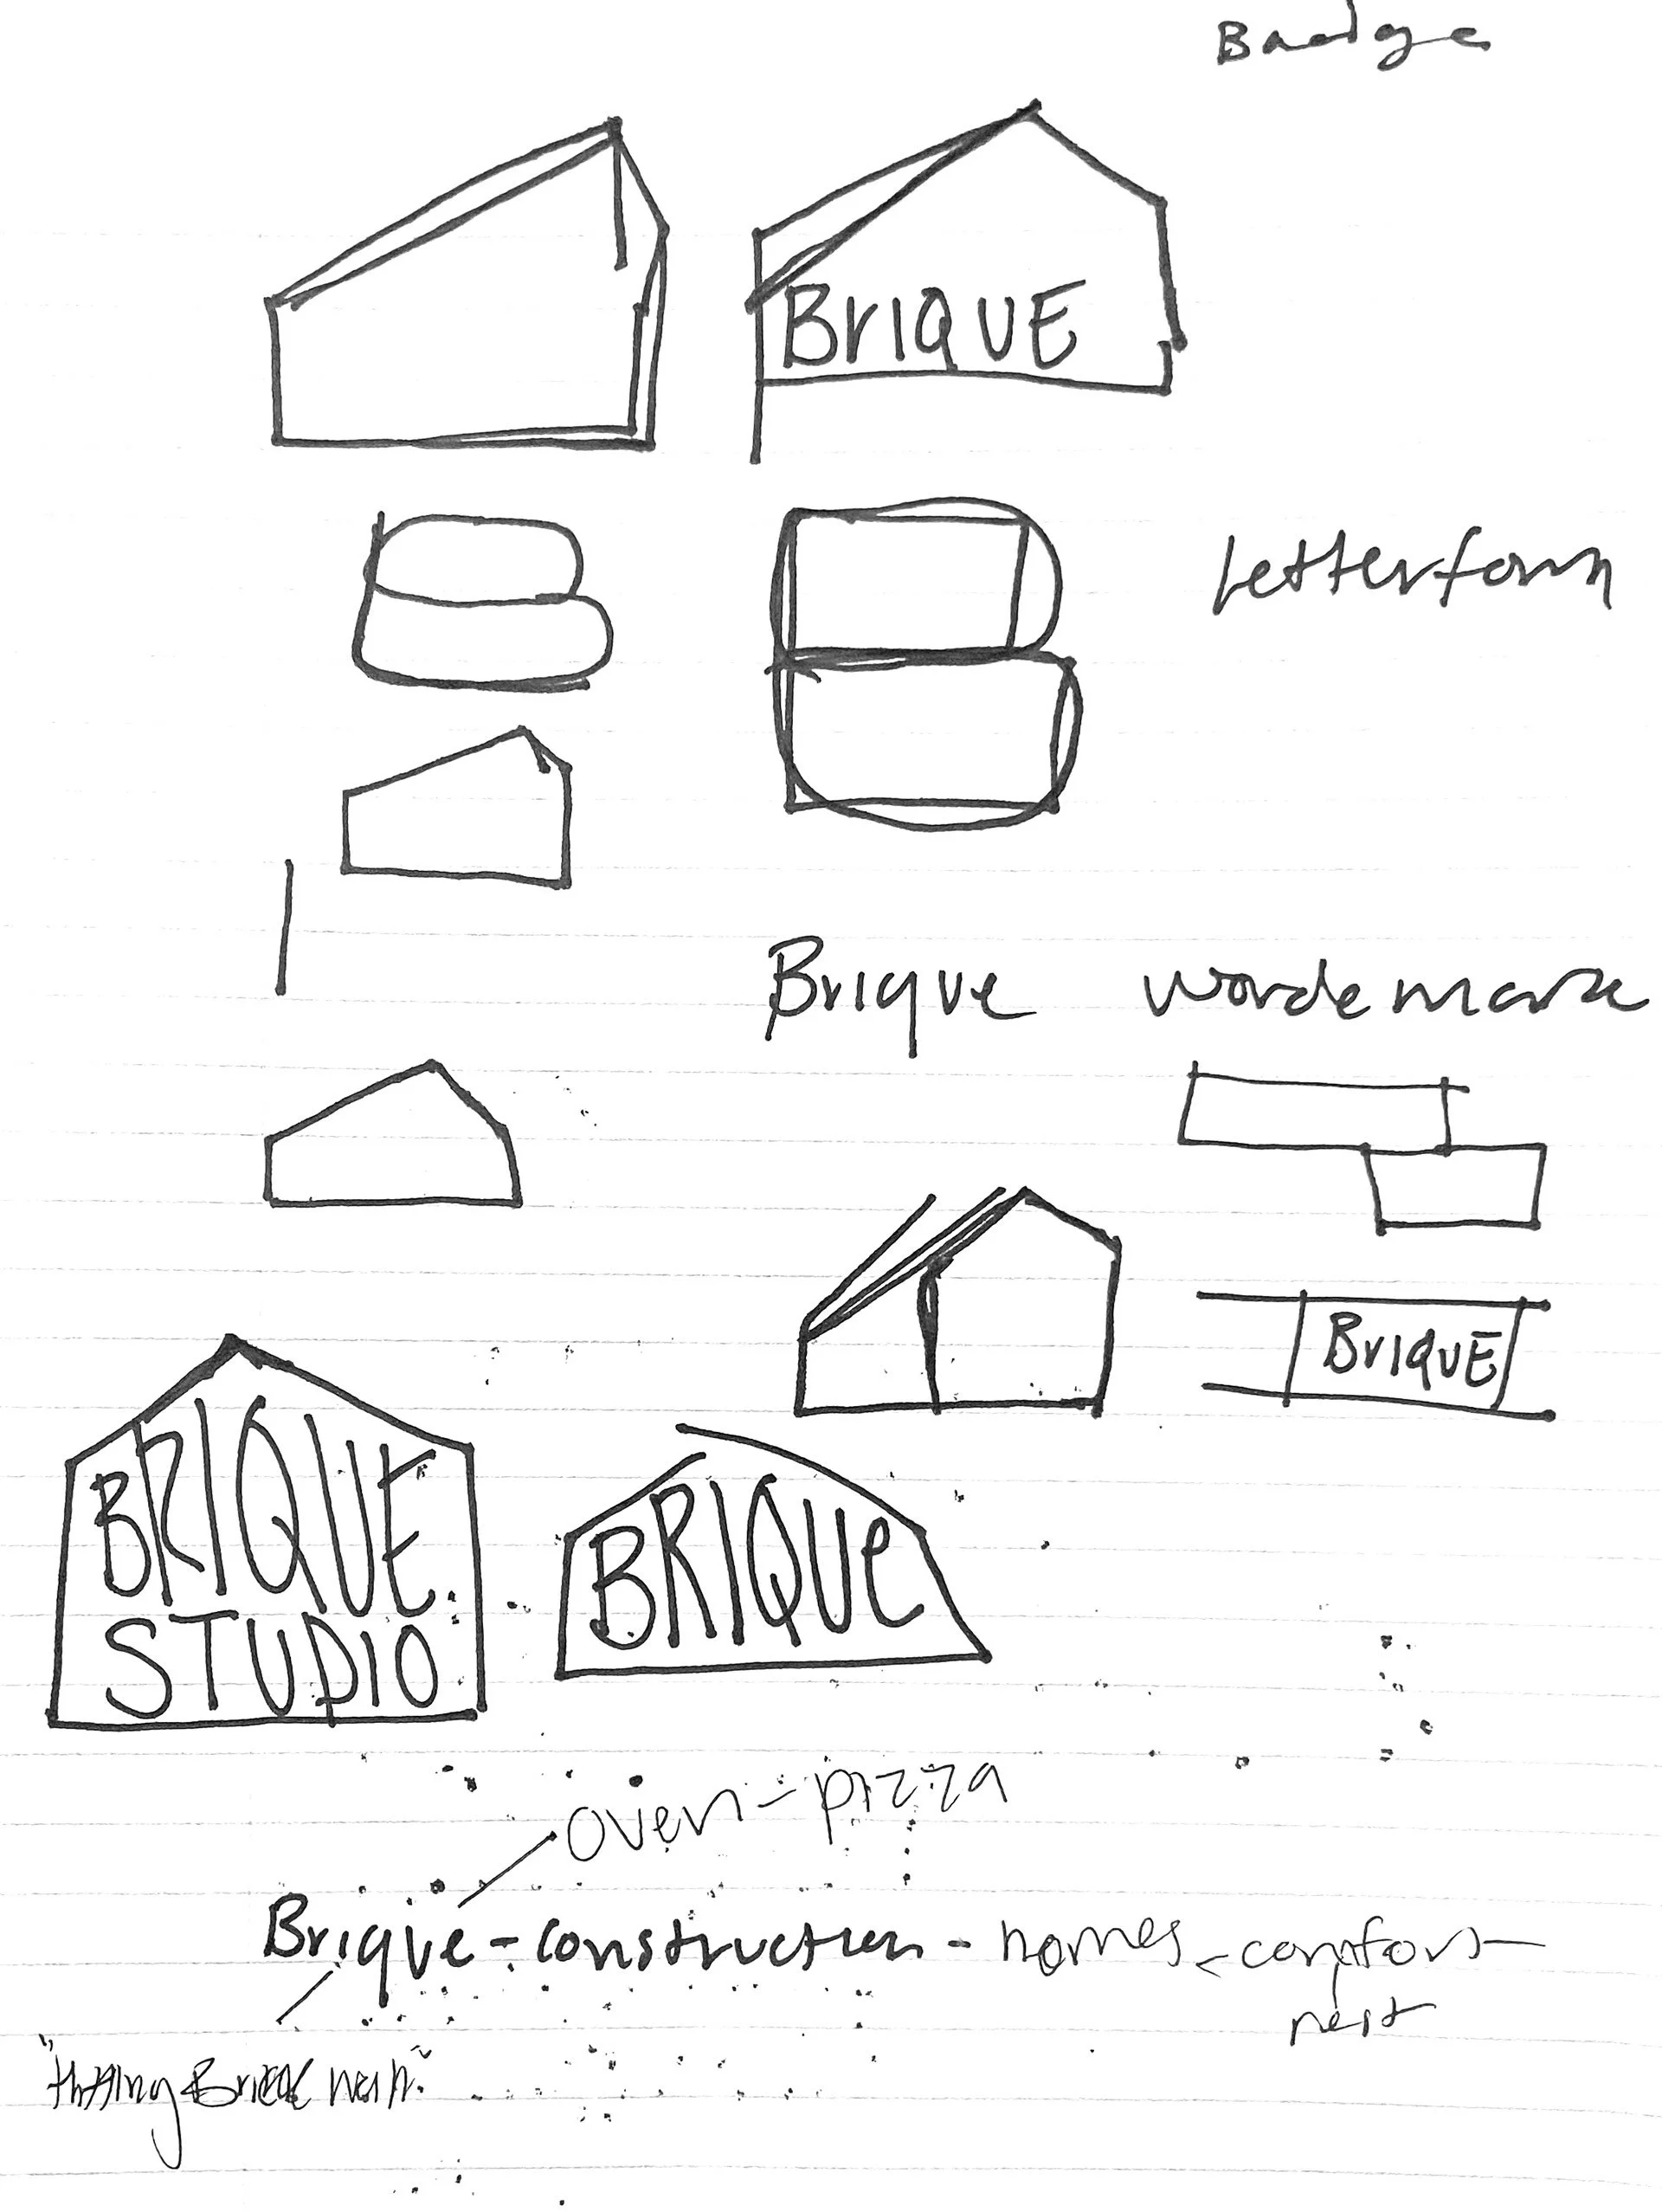 Badge
BrIQUE
Letterform
Brique wordemark
BrIQUE
BRIQUE
STUDIO
BRIQUe
oven - pizza
Brique - construction - homes - comfort
nest
"hitting Brick